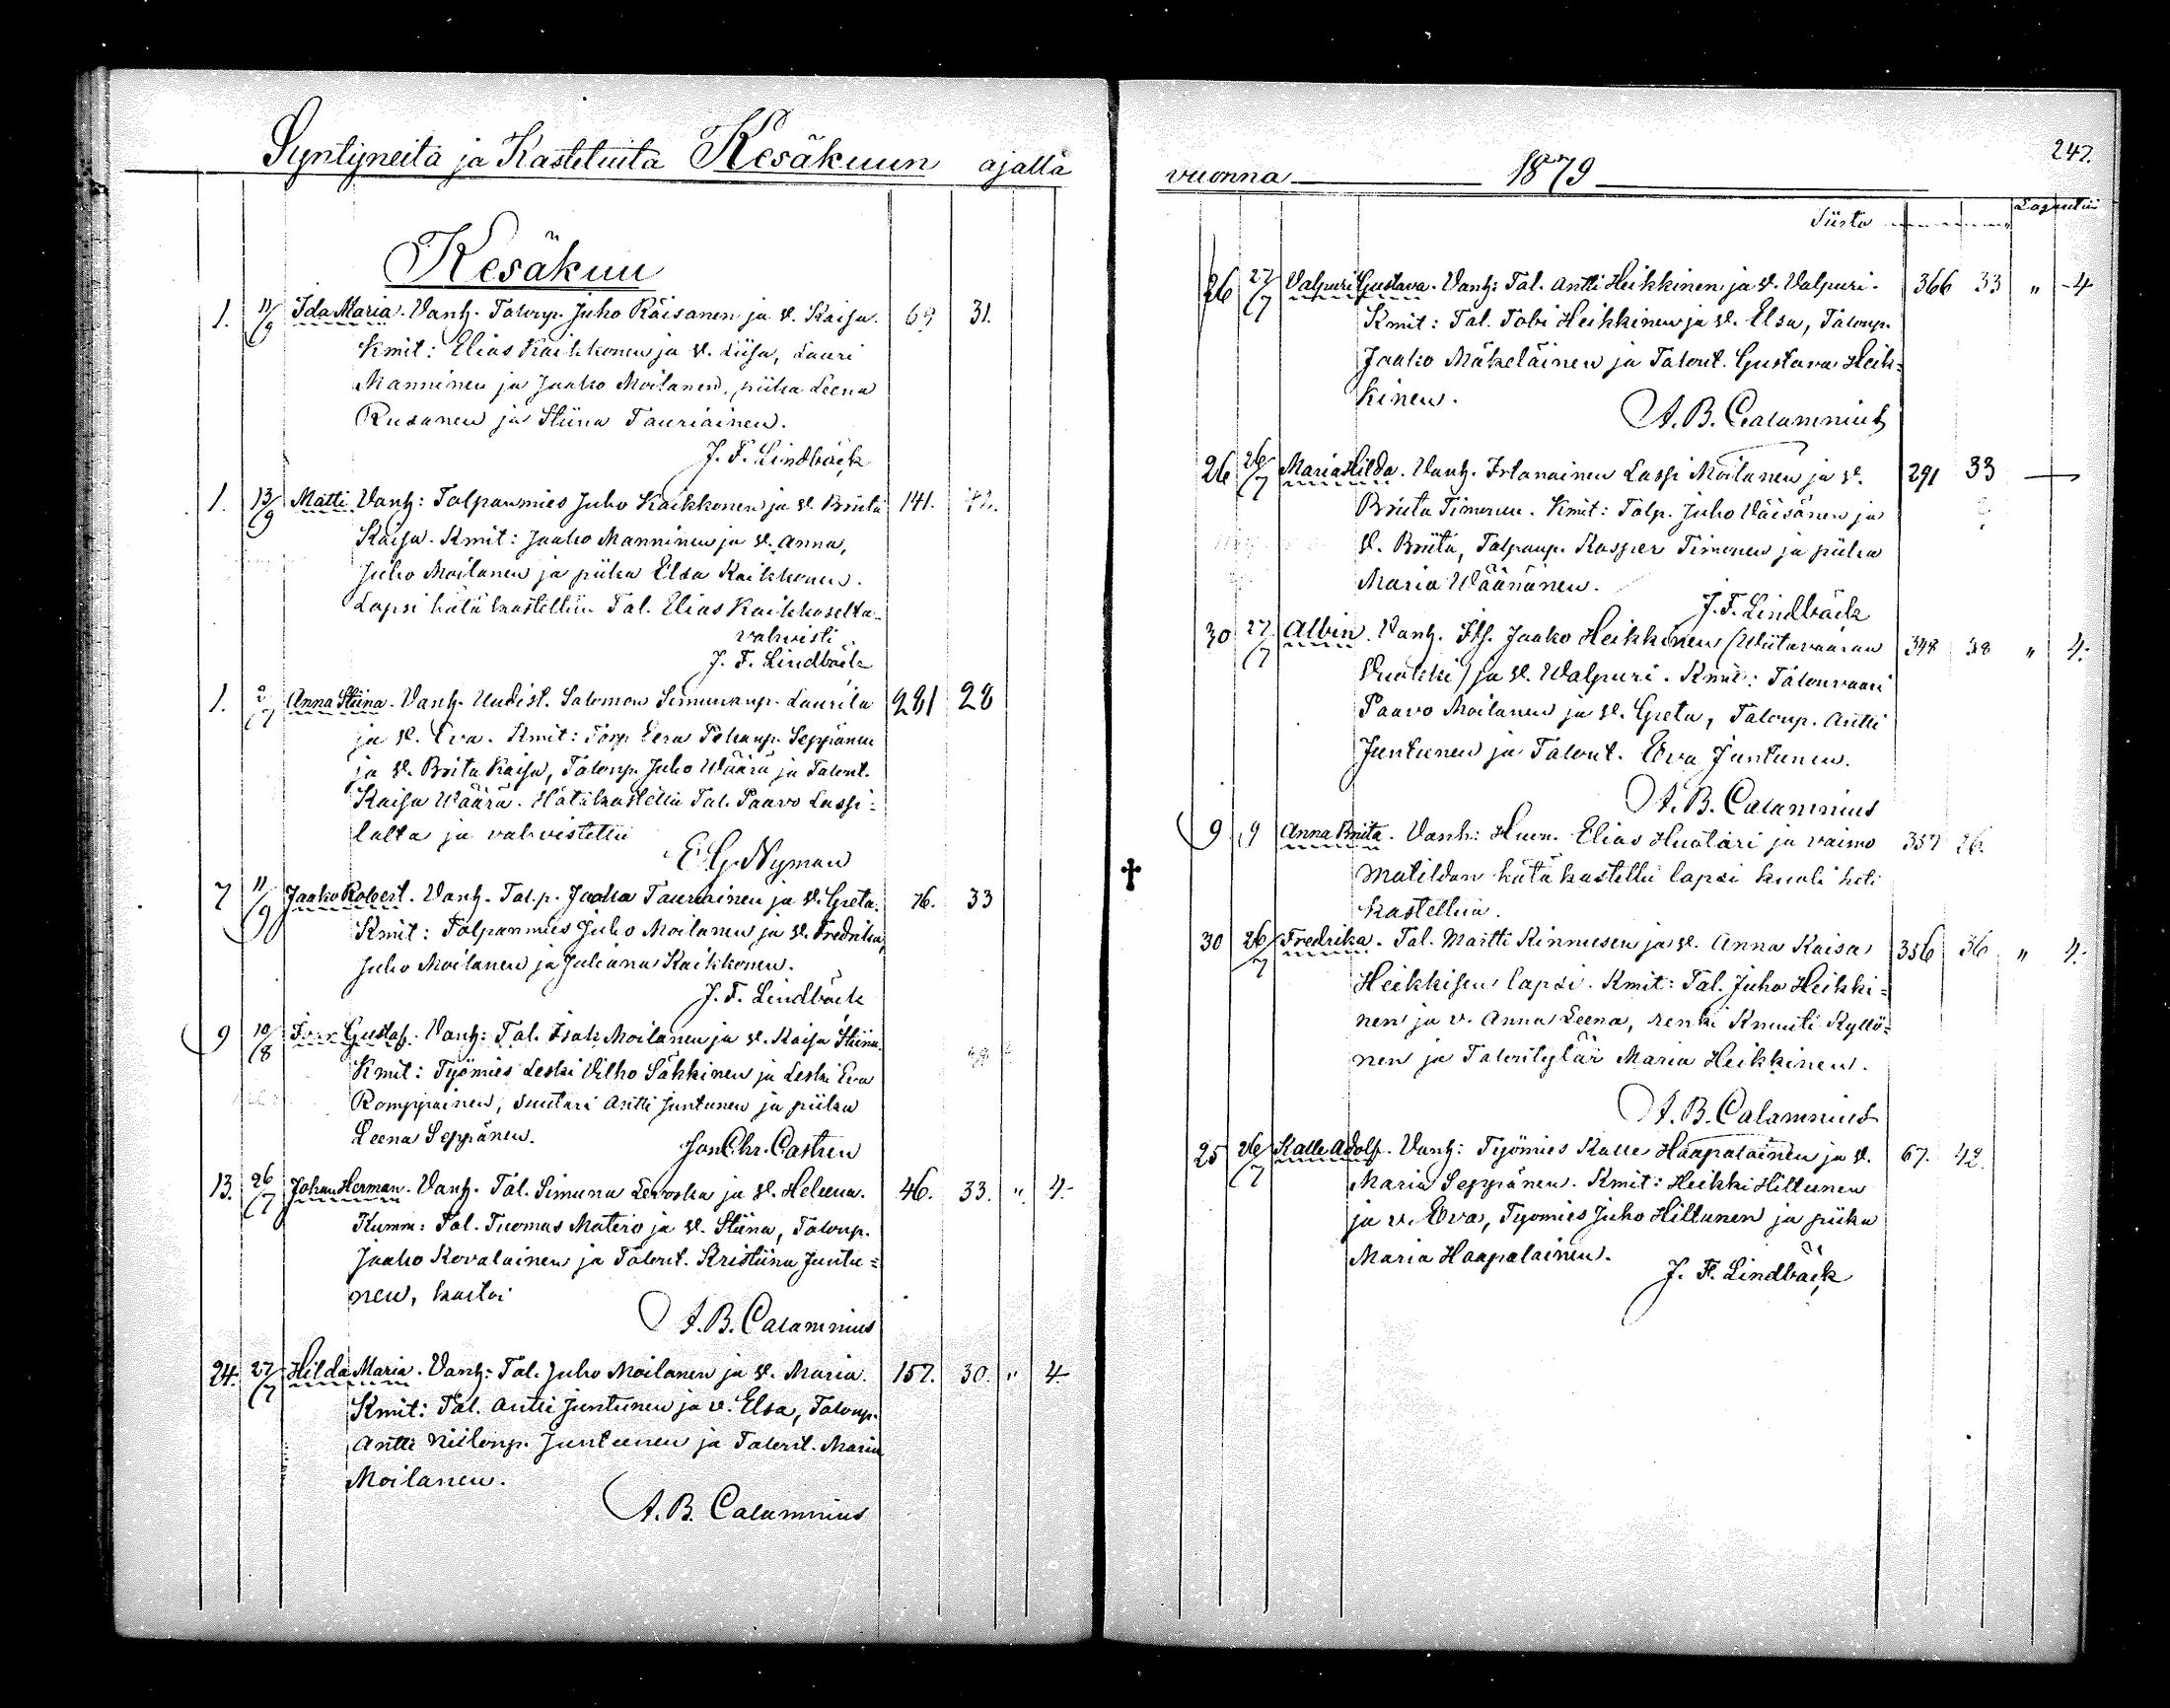 Syntyneitä ja Kastetuita Kesäkuun ajalla
Kesäkuu
1. 11/9 Ida Maria. Vanh. Talonp. Juho Räisänen ja v. Kaisa. 69 31.
Kmit: Elias Kaikkonen ja v. Liisa, Lauri
Manninen ja Jaako Moilanen, piika Leena
Rusanen ja Stiina Tauriainen.
J. F. Lindbäck
1. 13/9 Matti. Vanh: Talpanmies Juho Kaikkonen ja v. Briita 141.
Kaisa. Kmit: Jaako Manninen ja v. Anna,
Juho Moilanen ja piika Elsa Kaikkonen.
Lapsi hätäkastettiin Tal. Elias Kaikkoselta
vahvisti
J. F. Lindbäck
1. 2/7 Anna Stiina. Vanh. Uudist. Salomon Simunanp. Laurila 281 28
ja v. Eva. Kmit: Torp. Eera Pekanp. Seppänen
ja v. Brita Kaisa, Talonp. Juho Wäärä ja Talont.
Kaisa Wäärä. Hätäkastettiin Tal. Paavo Lassi-
lalta ja vahvistettu
E G Nyman
7 11/9 Jaako Robert. Vanh. Tal.p. Jaako Tauriainen ja v. Greta. 76. 33
Kmit: Talpanmies Juho Moilanen ja v. Fredrika,
Juho Moilanen ja Juliana Kaikkonen.
J. F. Lindbäck
9 10/8 Gustaf. Vanh: Tal. Isak Moilanen ja v. Kaisa Stiina.
Kmit: Työmies Leski Vilho Säkkinen ja Leski Eva
Romppainen, suutari Antti Juntunen ja piika
Leena Seppänen. Jon Chr. Castren
13. 26/7 Johan Herman. Vanh. Tal. Simuna ja v. Heleena. 46. 33. " 4.-
Kumm: Tal. Tuomas Matero ja v. Stiina, Talonp.
Jaako Kovalainen ja Talont. Kristiina Juntu=
nen, kastoi
A. B. Calamnius
24. 27/7 Hilda Maria. Vanh: Tal. Juho Moilanen ja v. Maria. 157. 30. " 4.-
Kmit: Tal. Antti Juntunen ja v. Elsa, Talonp.
Antti Niilonp. Juntunen ja Talont. Maria
Moilanen.
A. B. Calamnius
vuonna 1879 247.
Siirto
26 27/7 Valpuri Gustava. Vanh: Tal. Antti Heikkinen ja v. Valpuri. 366 33 " -4
Kmit: Tal. Tobi Heikkinen ja v. Elsa, Talonp.
Jaako Mäkeläinen ja Talont. Gustava Heik=
kinen.
A. B. Calamnius
26 26/7 Maria Hilda. Vanh. Irtanainen Lassi Moilanen ja v. 291 33
Briita Timonen. Kmit: Talp. Juho Väisänen ja
v. Briita, Talpanp. Kasper Timonen ja piika
Maria Wäänänen.
J. F. Lindbäck
30 27/7 Albin. Vanh. Jaako Heikkinen (Wiitavaaran 348 38 " 4.-
Vuokki) ja v. Walpuri. Kmit: Talonvaari
Paavo Moilanen ja v. Greta, Talonp. Antti
Juntunen ja Talont. Eva Juntunen.
A. B. Calamnius
9 9 Anna Briita. Vanh: Huon. Elias Huotari ja vaimo 357 26.
Matildan hätäkastettu lapsi kuoli heti
kastettua.
30 26/7 Fredrika. Tal. Martti Kinnusen ja v. Anna Kaisa 356 36 " 4.-
Heikkisen lapsi. Kmit: Tal. Juho Heikki=
nen ja v. Anna Leena, renki Knuuti Kyllö=
nen ja Talontytär Maria Heikkinen.
A. B. Calamnius
25 26/7 Kalle Adolf. Vanh: Työmies Kalle Haapalainen ja v. 67. 42.
Maria Seppänen. Kmit: Heikki Hiltunen
ja v. Eva, Työmies Juho Hiltunen ja piika
Maria Haapalainen.
J. F. Lindbäck